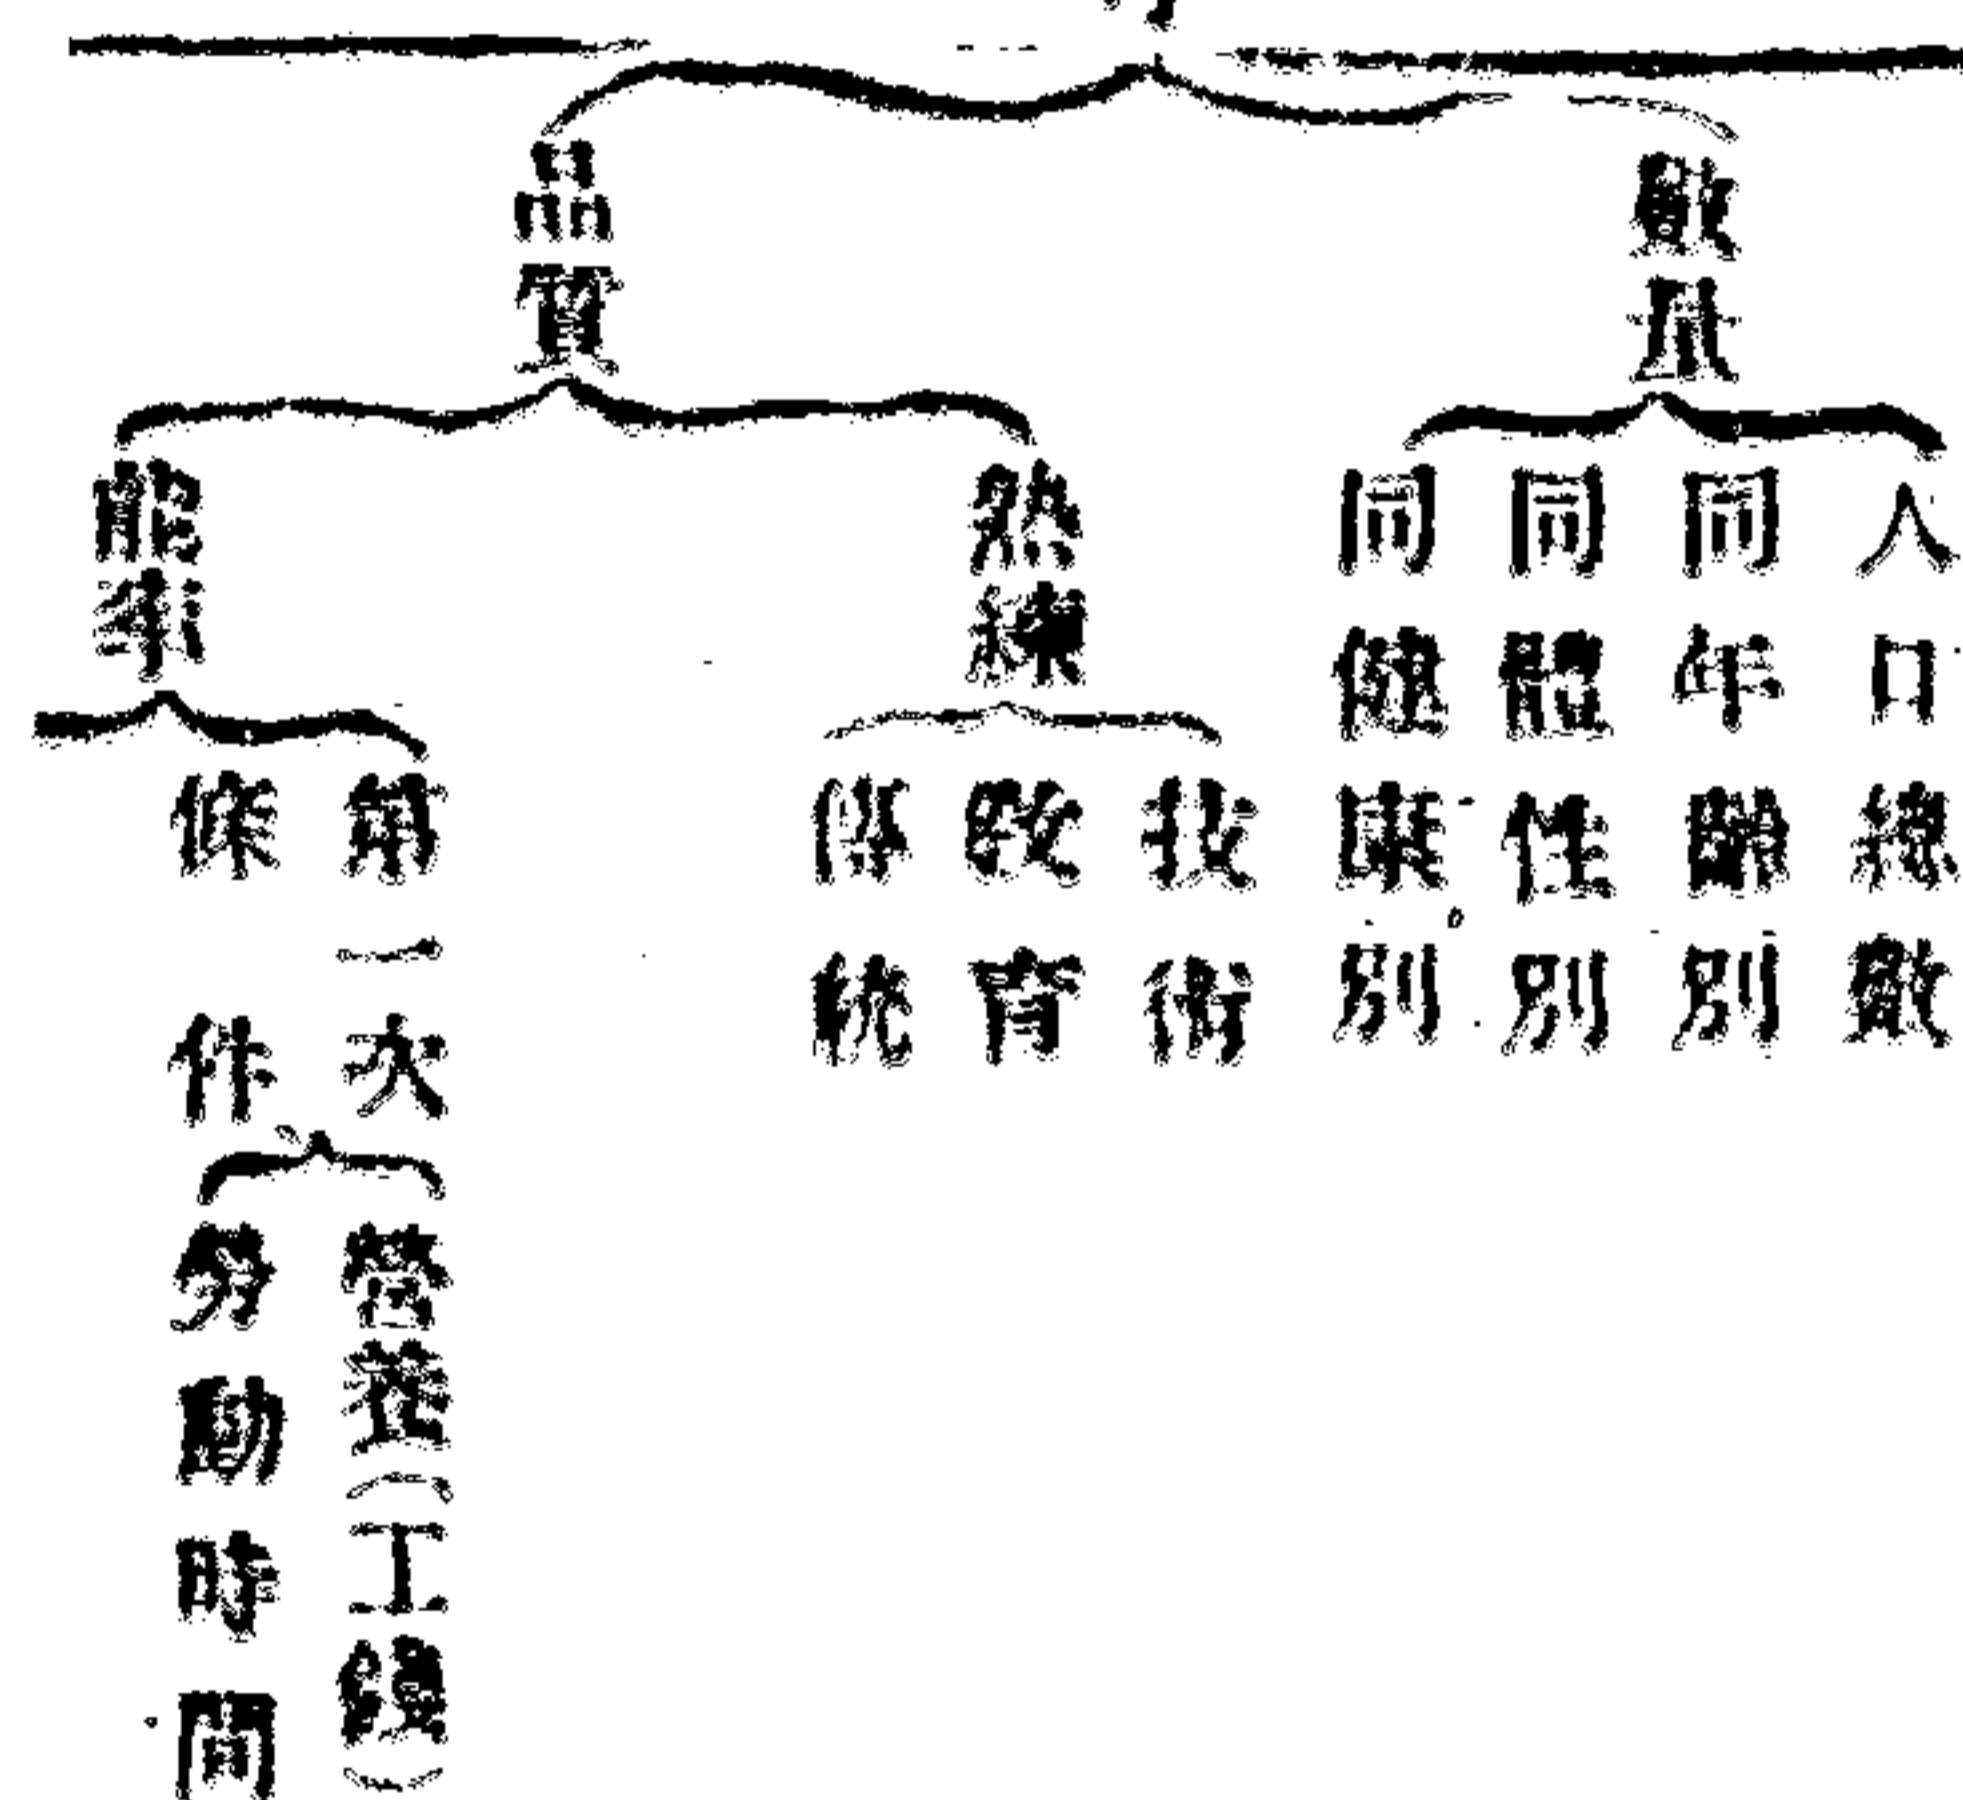 數量
人口總數
同年齢別
同體性別
同健康別
品質
熟練
技術
教育
傳統
能率
第一次
條件
營養(工錢)
勞働時間